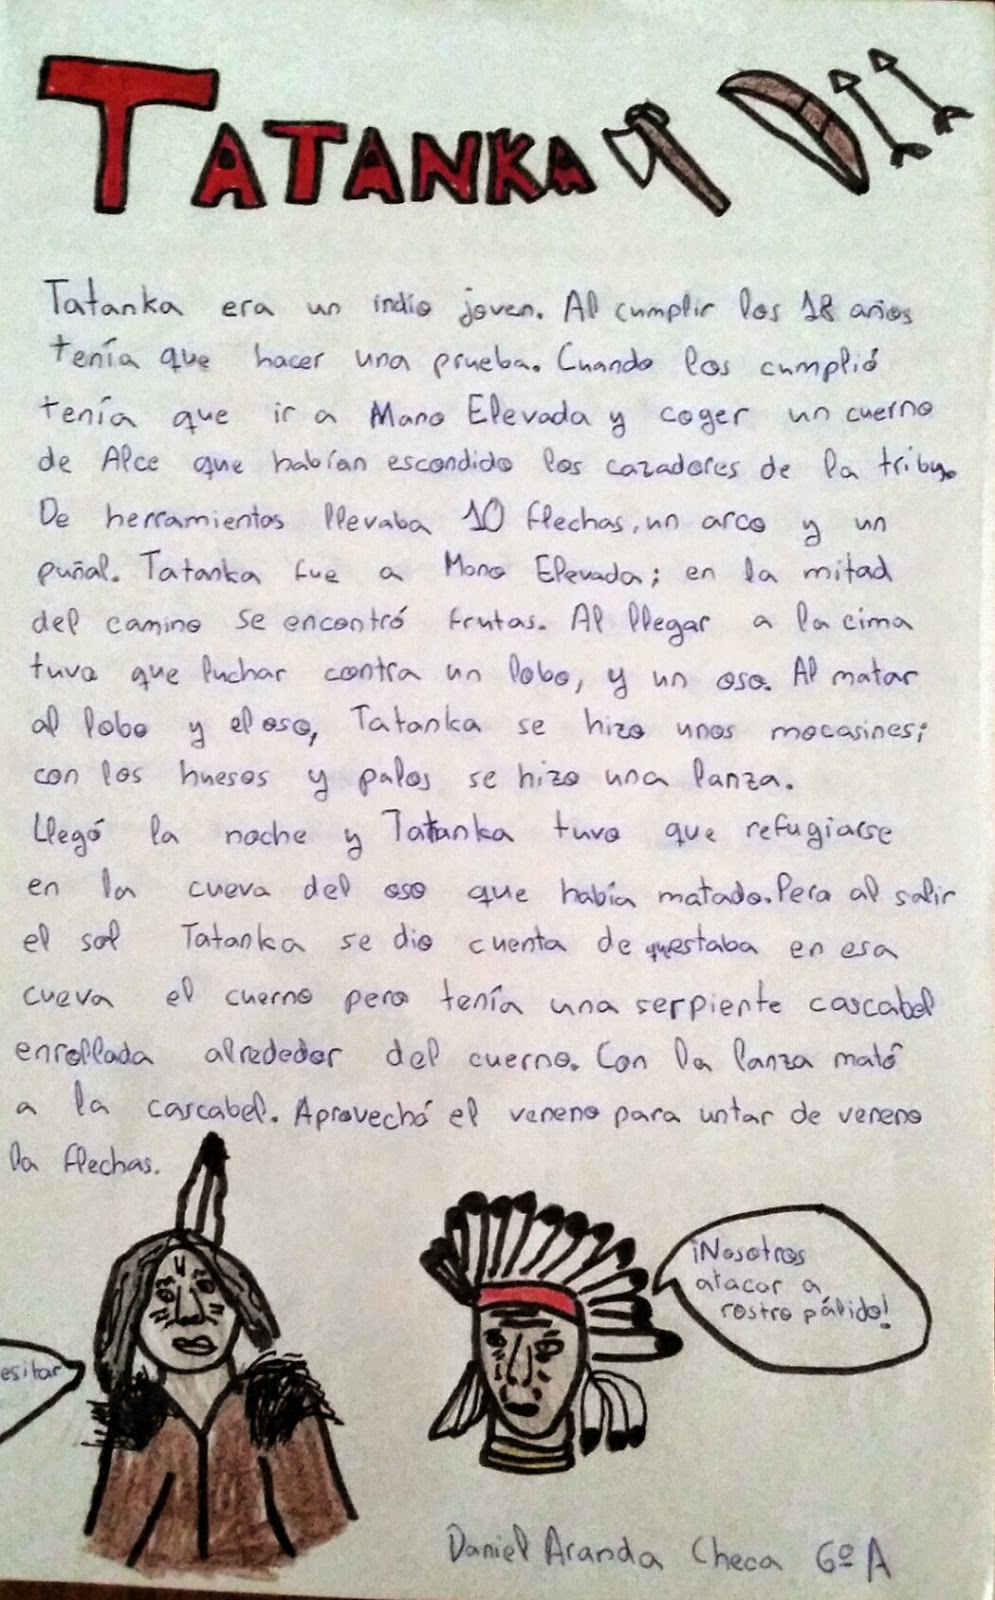 TATANKA
Tatanka era un indio joven. Al cumplir los 18 años
tenía que hacer una prueba. Cuando los cumplió
tenía que ir a Mano Elevada y coger un cuerno
de Alce que habían escondido los cazadores de la tribu.
De herramientos llevaba 10 flechas, un arco y un
puñal. Tatanka fue a Mano Elevada; en la mitad
del camino se encontró frutas. Al llegar a la cima
tuvo que luchar contra un lobo, y un oso. Al matar
al lobo y el oso, Tatanka se hizo unos mocasines;
con los huesos y palos se hizo una lanza.
Llegó la noche y Tatanka tuvo que refugiarse
en la cueva del oso que había matado. Pero al salir
el sol Tatanka se dio cuenta de questaba en esa
cueva el cuerno pero tenía una serpiente cascabel
enrollada alrededor del cuerno. Con la lanza mató
a la cascabel. Aprovechó el veneno para untar de veneno
la flechas.
¡Nosotros
atacar a
rostro pálido!
esitar
Daniel Aranda Checa 6º A